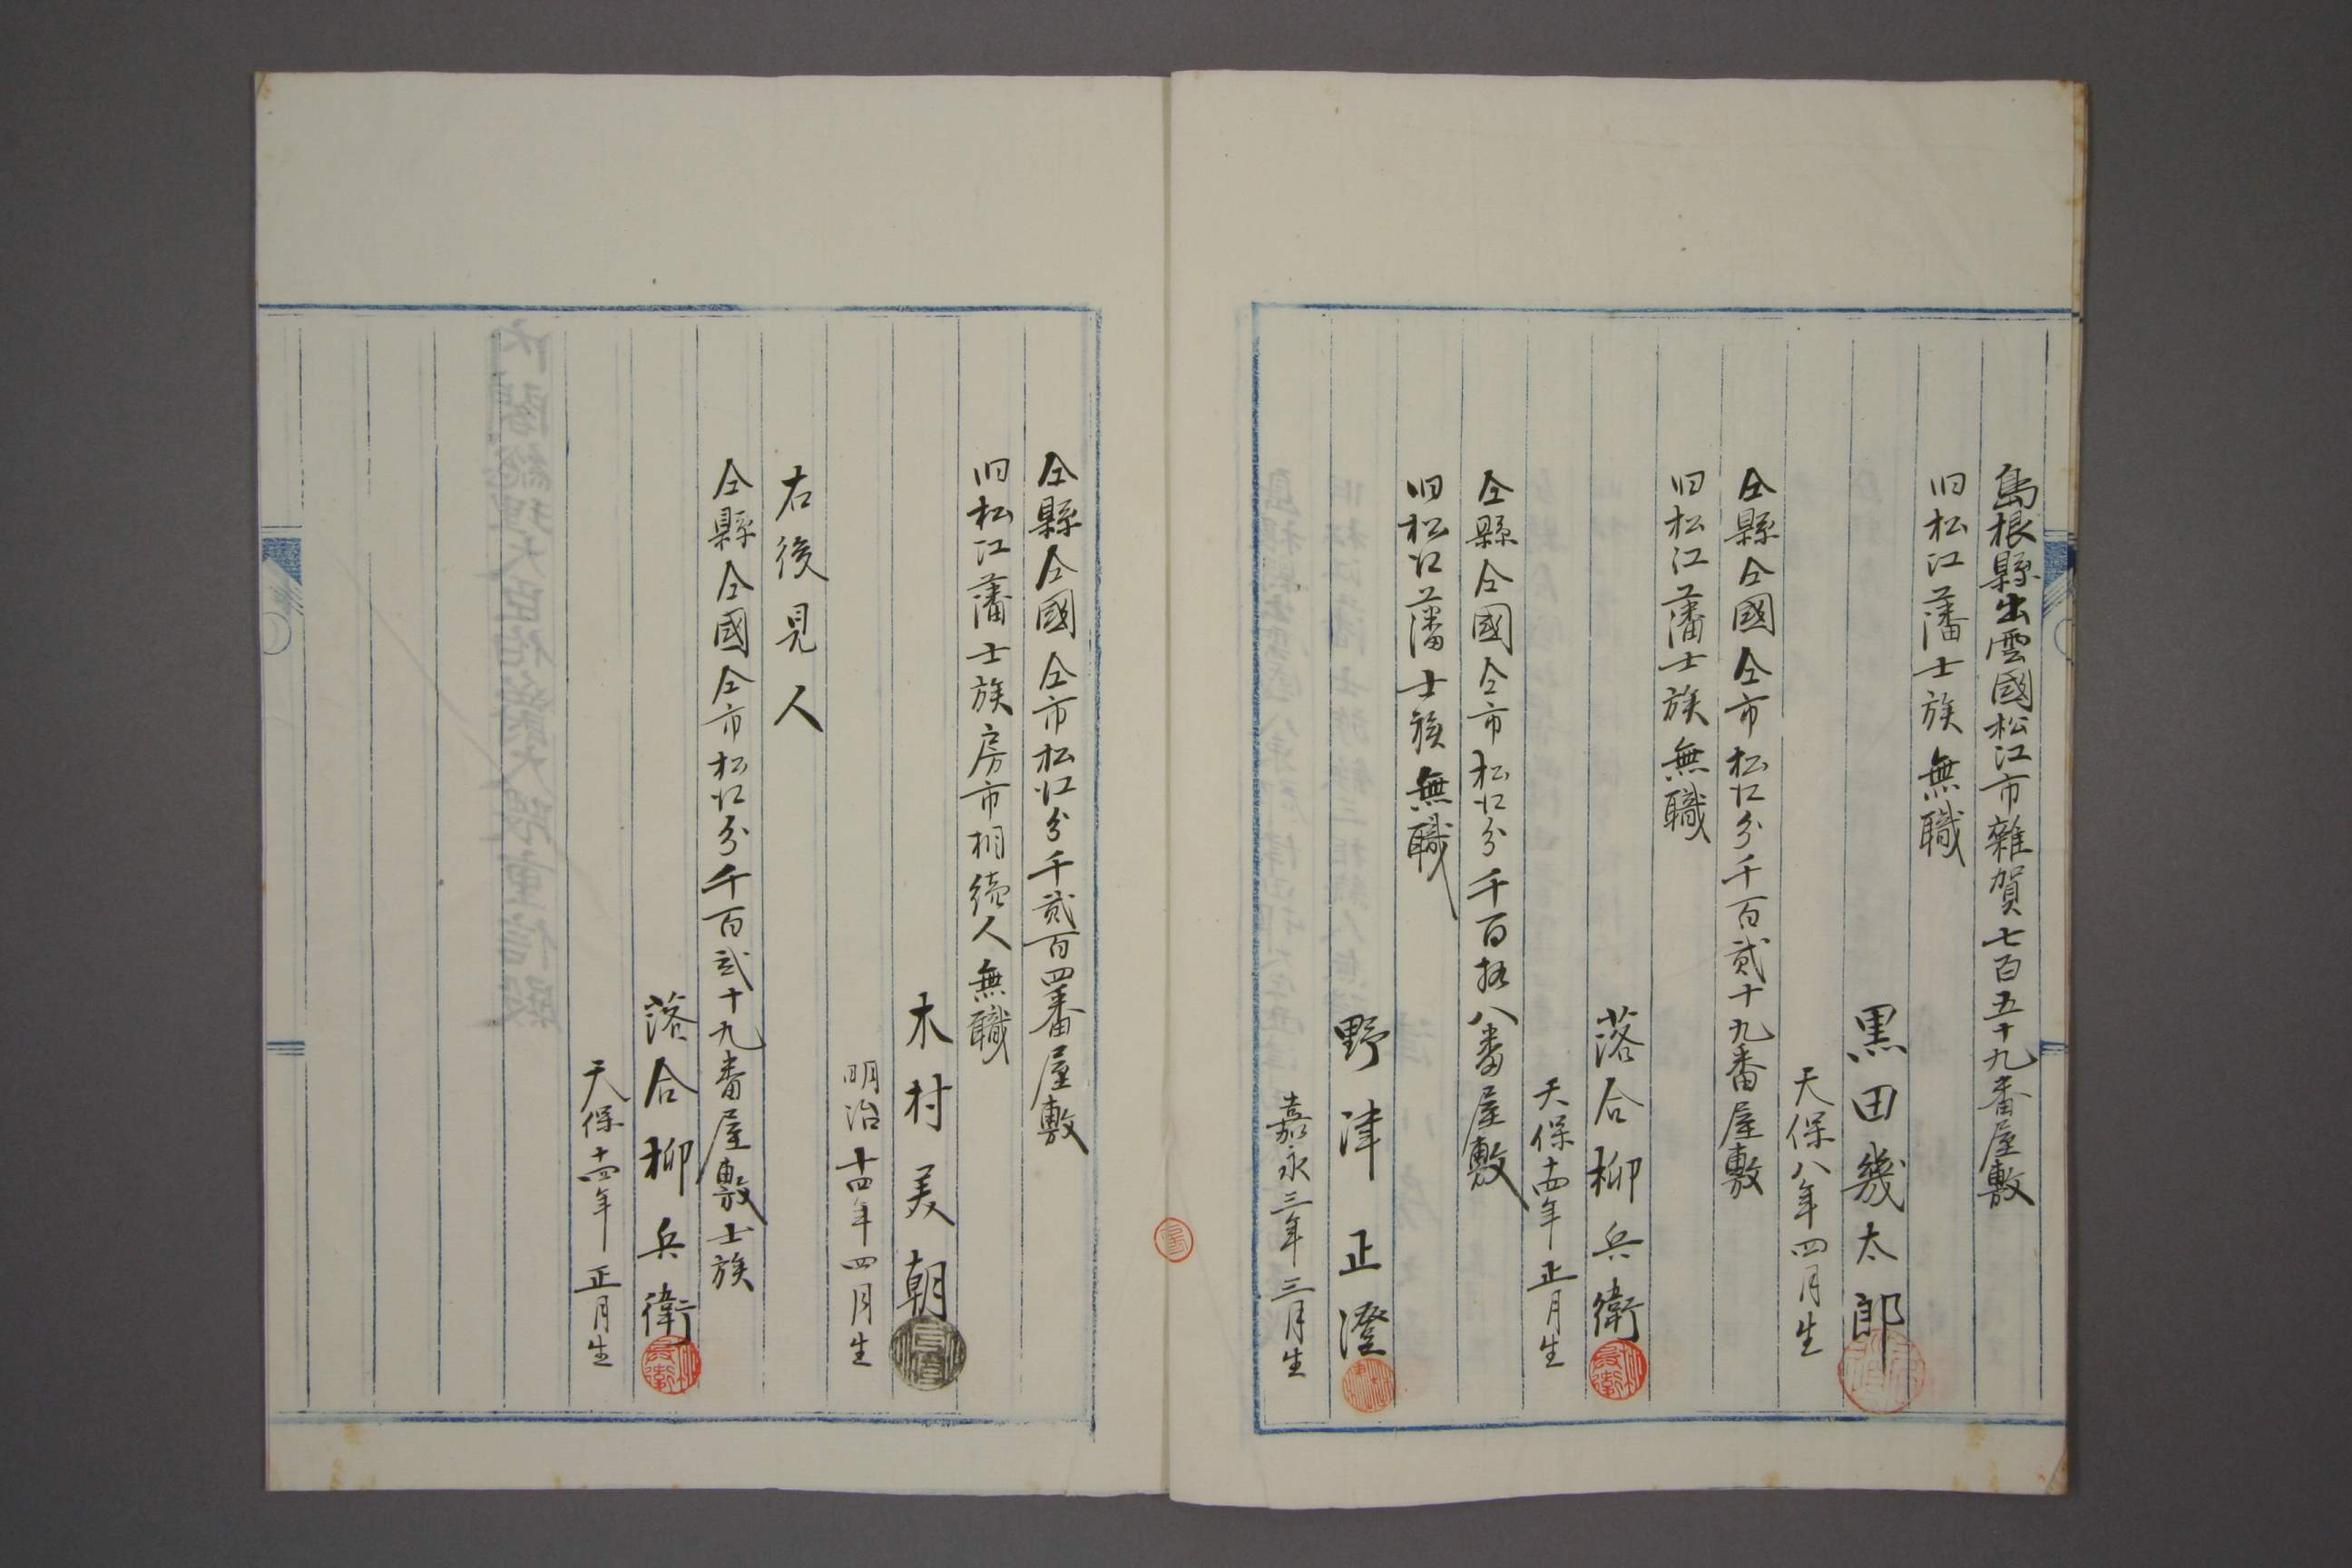 島根縣出雲國松江市雜賀七百五十九番屋敷
旧松江藩士族無職
黒田幾太郎
天保八年四月生
仝縣仝國仝市松江分千百貳十九番屋敷
旧松江藩士族無職
落合柳兵衛
天保十四年正月生
仝縣仝國仝市松江分千百拾八番屋敷
旧松江藩士族無職
野津正澄
嘉永三年三月生
仝縣仝國仝市松江分千貳百四番屋敷
旧松江藩士族房市相続人無職
木村美朝
明治十四年四月生
右後見人
仝縣仝國仝市松江分千百貳十九番屋敷士族
落合柳兵衛
天保十四年正月生